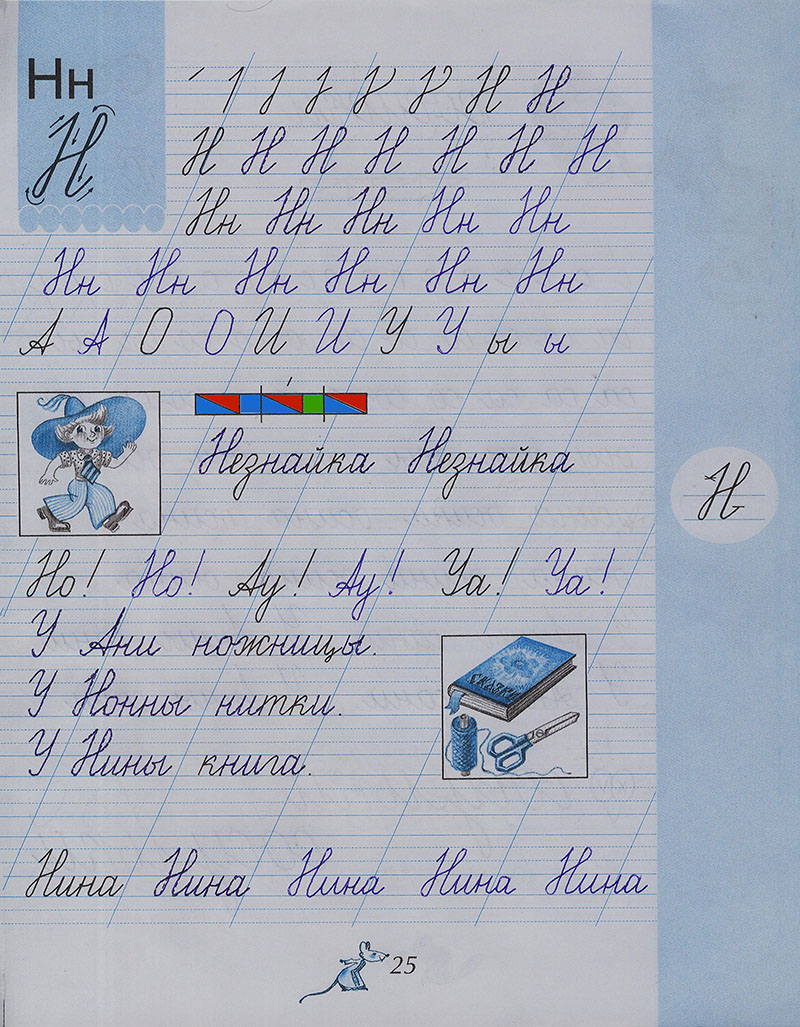 Нн
Н
Н Н
Н Н Н Н Н Н Н
Нн Нн Нн Нн Нн
Нн Нн Нн Нн Нн Нн
А А О О И И У У ы ы
Незнайка Незнайка
Н
Но! Но! Ау! Ау! Уа! Уа!
У Ани ножницы.
У Нонны нитки.
У Нины книга.
СКАЗКИ
Нина Нина Нина Нина Нина
25